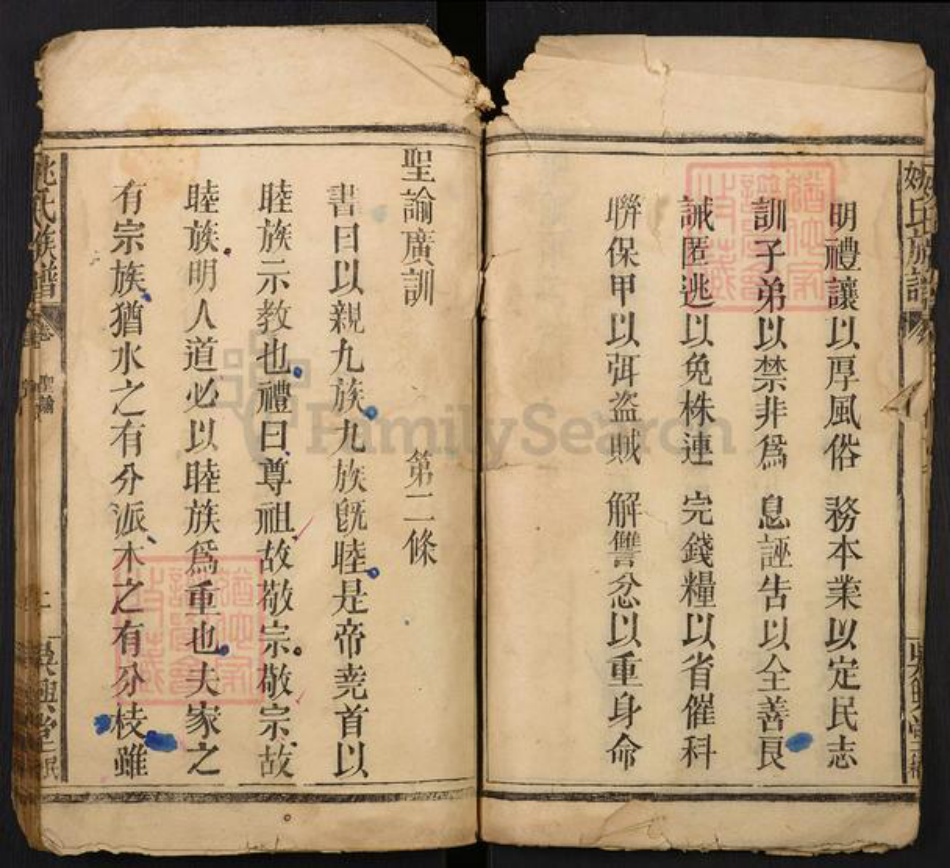 姚氏族譜
明禮讓以厚風俗 務本業以定民志
訓子弟以禁非爲 息誣告以全善良
誡匿逃以免株連 完錢糧以省催科
聨保甲以弭盗賊 解讐忿以重身命
聖諭廣訓 第二條
書曰以親九族九族旣睦是帝堯首以
睦族示教也禮曰尊祖故敬宗敬宗故
睦族明人道必以睦族爲重也夫家之
有宗族猶水之有分派木之有分枝雖
姚氏族譜
聖諭
二
吳興堂
FamilySearch